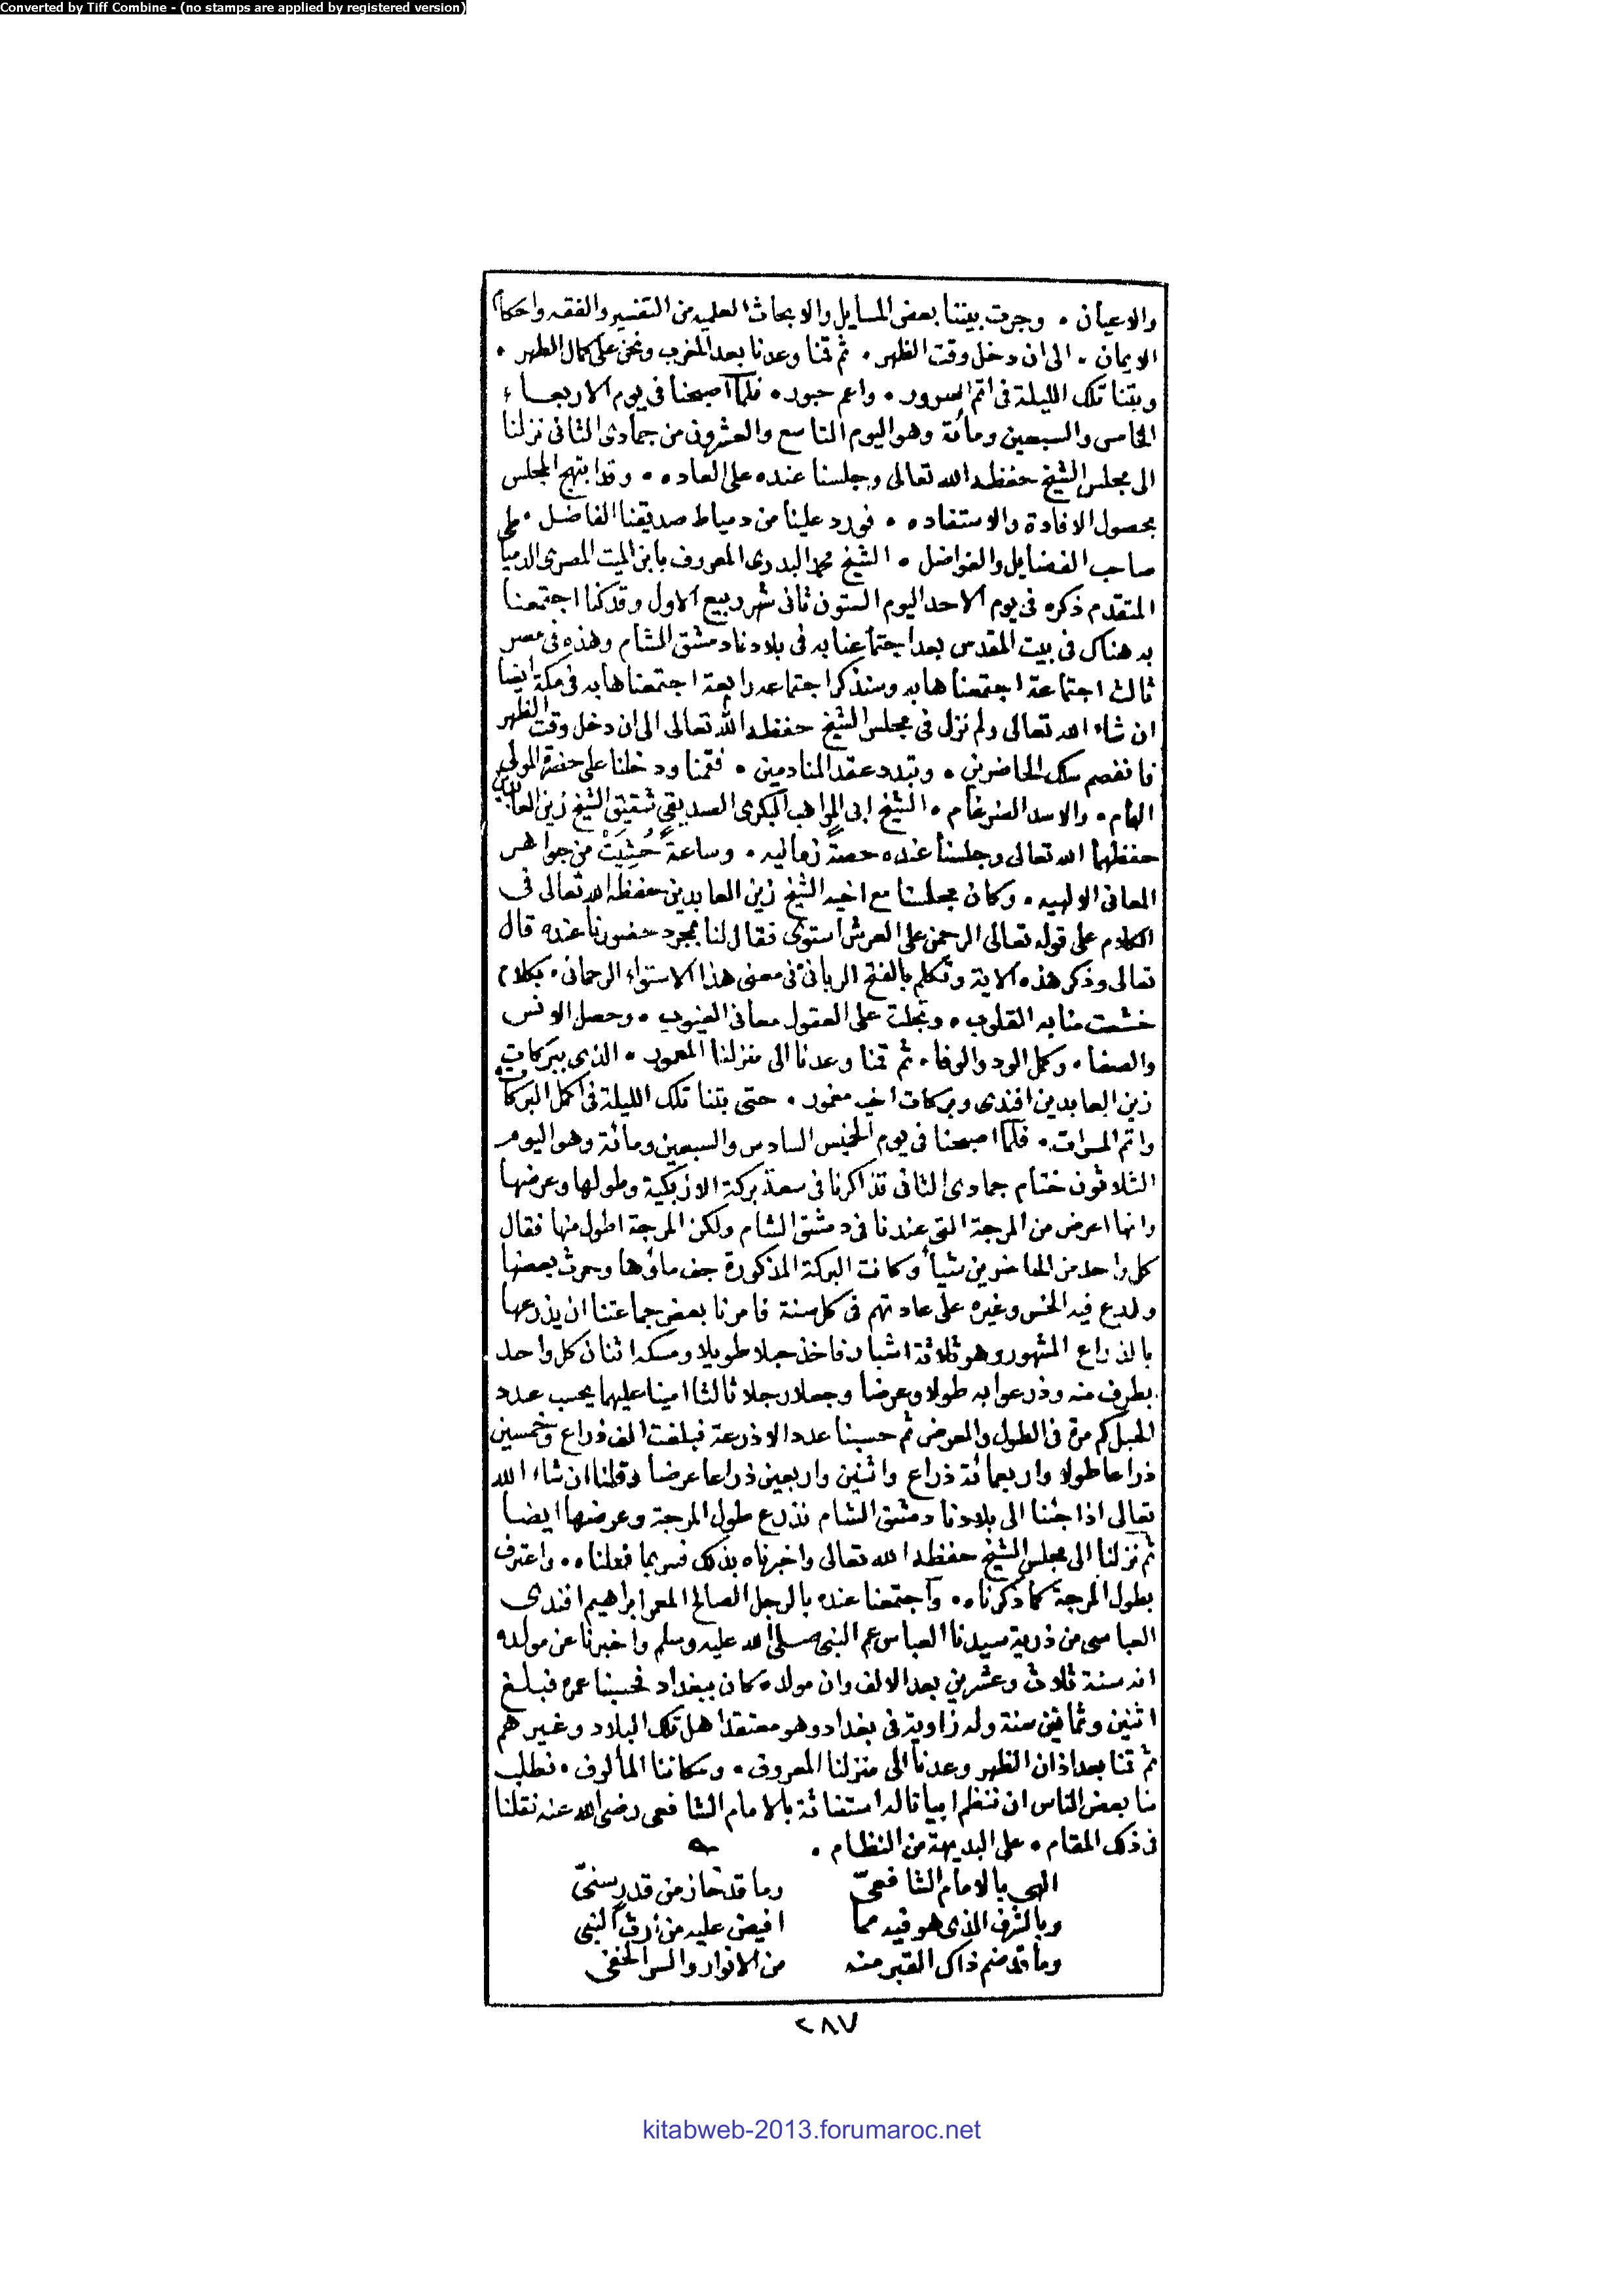 Converted by Tiff Combine - (no stamps are applied by registered version)
والاعيان . وجرت بيننا بعض المسايل والابحاث العلميه من التفسير والفقه واحكام
الايمان . الى ان دخل وقت الظهر . ثم قمنا وعدنا بعد المغرب ونحن على كمال الطهر .
وبتنا تلك الليلة فى اتم السرور . واعم حبور . فلما اصبحنا فى يوم الاربعاء
الخامس والسبعين ومائة وهو اليوم التاسع والعشرون من جمادى الثانى نزلنا
الى مجلس الشيخ حفظه الله تعالى وجلسنا عنده على العاده . وقد ابتهج المجلس
بحصول الافادة والاستفاده . فورد علينا من دمياط صديقنا الفاضل .
صاحب الفضايل والفواضل . الشيخ محمد البدرى المعروف بابن الميت المصرى الدمياطى
المتقدم ذكره فى يوم الاحد اليوم الستون ثانى شهر ربيع الاول وقد كنا اجتمعنا
به هناك فى بيت المقدس بعد اجتماعنا به فى بلادنا دمشق الشام وهذه فى مصر
ثالث اجتماعة اجتمعناها به وسنذكر اجتماعه رابعة اجتمعناها به فى مكة ايضا
ان شاء الله تعالى ولم نزل فى مجلس الشيخ حفظه الله تعالى الى ان دخل وقت الظهر
فانفصم سلك الحاضرين . وتبدد عقد المنادمين . فقمنا ودخلنا على حضرة المولى
الهام . والاسد الضرغام . الشيخ ابى المواهب البكرى الصديقي شقيق الشيخ زين العابدين
حفظهما الله تعالى وجلسنا عنده حصةً زمانيه . وساعةً حُشِيَتْ من جواهر
المعانى الالهيه . وكان مجلسنا مع اخيه الشيخ زين العابدين حفظه الله تعالى فى
الكلام على قوله تعالى الرحمن على العرش استوى فقال لنا بمجرد حضورنا عنده قال
تعالى وذكر هذه الاية وتكلم بالفتح الربانى فى معنى هذا الاستواء الرحمانى . بكلام
خشعت منا به القلوب . وتجلت على العقول معانى الغيوب . وحصل الانس
والصفا . وكمل الود والوفا . ثم قمنا وعدنا الى منزلنا المعمور . الذى ببركات
زين العابدين افندى وبركات اخيه مغمور . حتى بتنا تلك الليلة فى اكمل البركات
واتم المسرات . فلما اصبحنا فى يوم الخميس السادس والسبعين ومائة وهو اليوم
الثلاثون ختام جمادى الثانى تذاكرنا فى سعة بركة الازبكية وطولها وعرضها
وانها اعرض من المرجة التى عندنا فى دمشق الشام ولكن المرجة اطول منها فقال
كل واحد من الحاضرين شيأ وكانت البركة المذكورة جف ماؤها وحرث بعضها
وزرع فيه الخس وغيره على عادتهم فى كل سنة فامرنا بعض جماعتنا ان يذرعها
بالذراع المشهور وهو ثلاثة اشبار فاخذ حبلا طويلا ومسكه اثنان كل واحد
بطرف منه وذرعوا به طولا وعرضا وجعلا رجلا ثالثا امينا عليهما يحسب عدد
الحبل كم مرة فى الطول والعرض ثم حسبنا عدد الاذرعة فبلغت الف ذراع وخمسين
ذراعا طولا واربعمائة ذراع واثنين واربعين ذراعا عرضا وقلنا ان شاء الله
تعالى اذا جئنا الى بلادنا دمشق الشام نذرع طول المرجة وعرضها ايضا
ثم نزلنا الى مجلس الشيخ حفظه الله تعالى واخبرناه بذلك فسر بما فعلناه . واعترف
بطول المرجة كما ذكرناه . واجتمعنا عنده بالرجل الصالح المعمر ابراهيم افندى
العباسى من ذرية سيدنا العباس عم النبي صلى الله عليه وسلم واخبرنا عن مولده
انه سنة ثلاث وعشرين بعد الالف وان مولده كان ببغداد فحسبنا عمره فبلغ
اثنين وثمانين سنة وله زاوية فى بغداد وهو معتقد اهل تلك البلاد وغيرهم
ثم قمنا بعد اذان الظهر وعدنا الى منزلنا المعروف . ومكاننا المألوف . فطلب
منا بعض الناس ان ننظم ابياتا له استغاثة بالامام الشافعى رضى الله عنه فقلنا
فى ذلك المقام . على البديهة من النظام .
الهي بالامام الشافعىّ وما قد حاز من قدر سنىّ
وبالشرف الذى هو فيه مما افيض عليه من ارث النبى
وما قد ضم ذاك القبر منه من الانوار والسر الخفى
٢٨٧
kitabweb-2013.forumaroc.net